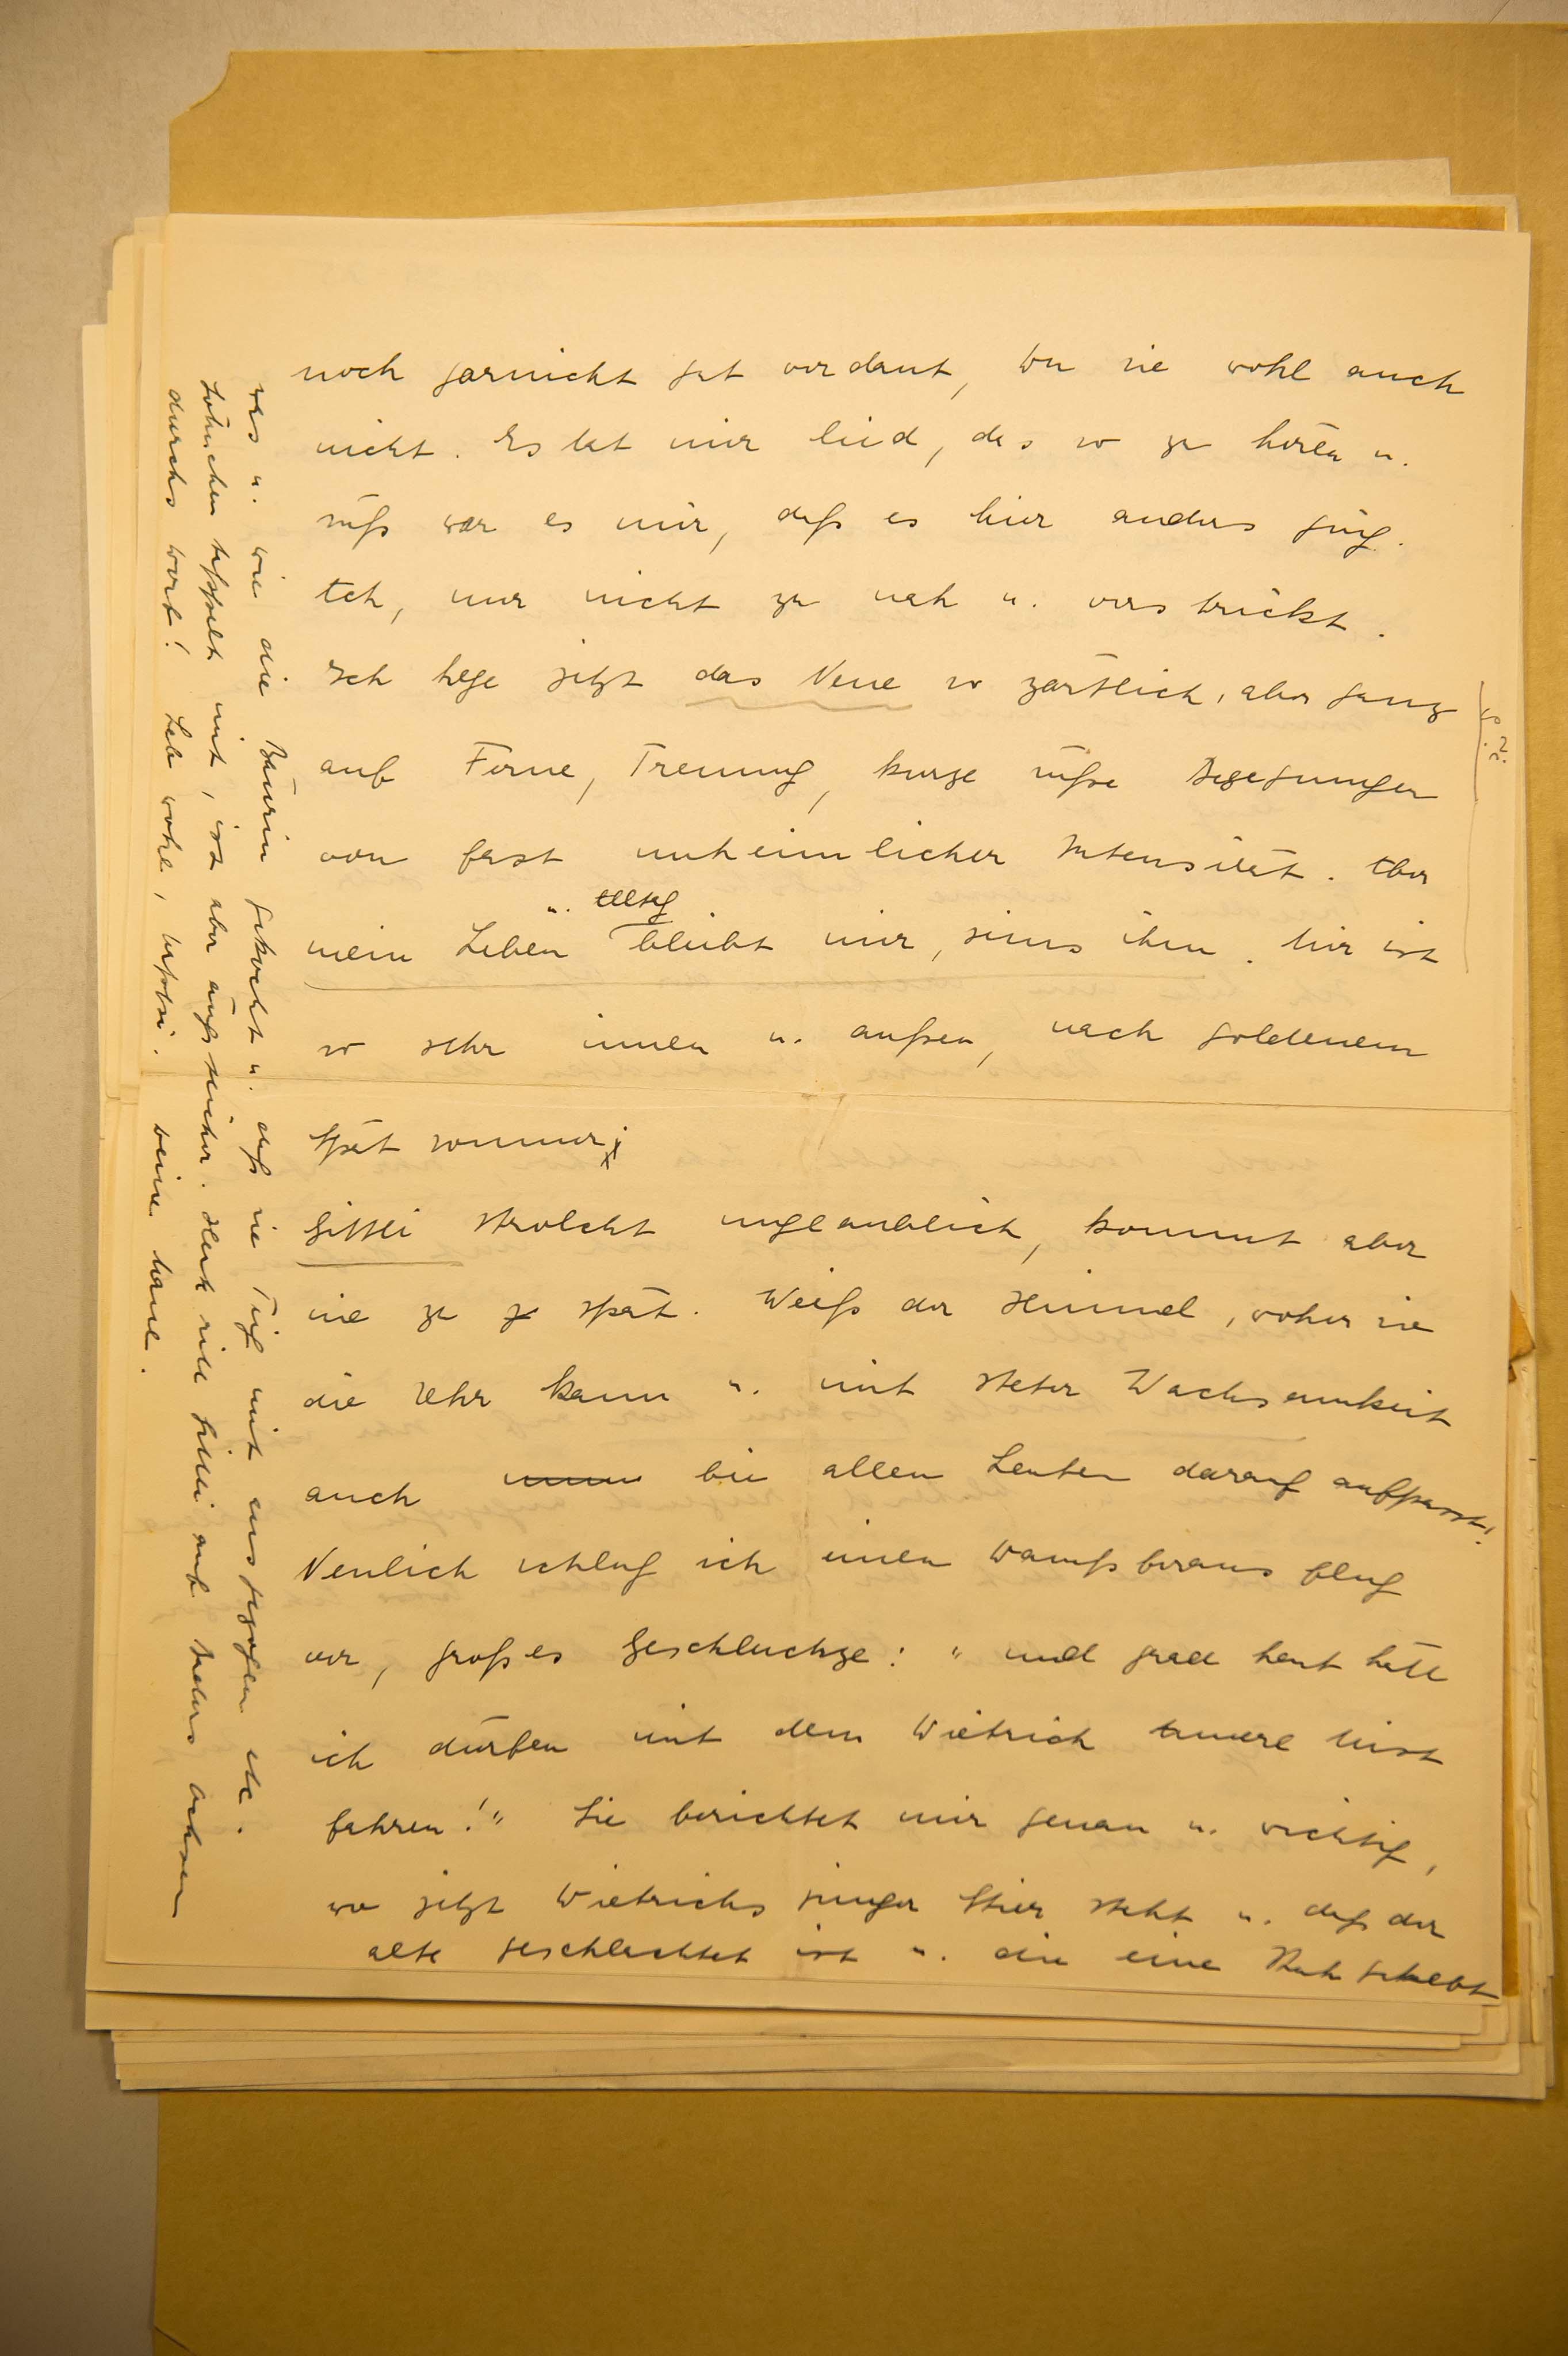 noch garnicht gut verdaut, Du sie wohl auch
nicht. Es tat mir leid, das so zu hören u.
süß war es mir, daß es hier anders ging.
Ach, nur nicht zu nah u. verstrickt.
Ich hege jetzt das Neue so zärtlich, aber ganz
auf Ferne, Trennung, kurze süße Begegnungen
von fast unheimlicher Intensität. Aber
mein Leben u. Alltag bleibt mir, seins ihm. Mir ist
so sehr innen u. außen, nach goldenem
Spätsommer;
strolcht unglaublich, kommt aber
nie zu spät. Weiß der Himmel, woher sie
die Uhr kann u. mit steter Wachsamkeit
auch bei allen Leuten darauf aufpasst!
Neulich schlug ich einen Dampferausflug
vor, großes Geschluchze: "und grad heut hätt
ich dürfen mit dem Dietrich Mist
fahren!" Sie berichtet mir genau u. wichtig,
wo jetzt Dietrichs junger Stier steht u. daß der
alte geschlachtet ist u. die eine Kuh gekalbt
was u. wie die Bäurin gekocht u. daß sie Teig mit ausgezogen etc.
mit, ist aber äußerst sicher. Heut ritt auf Ochsen
durchs Dorf! Leb wohl,
Deine